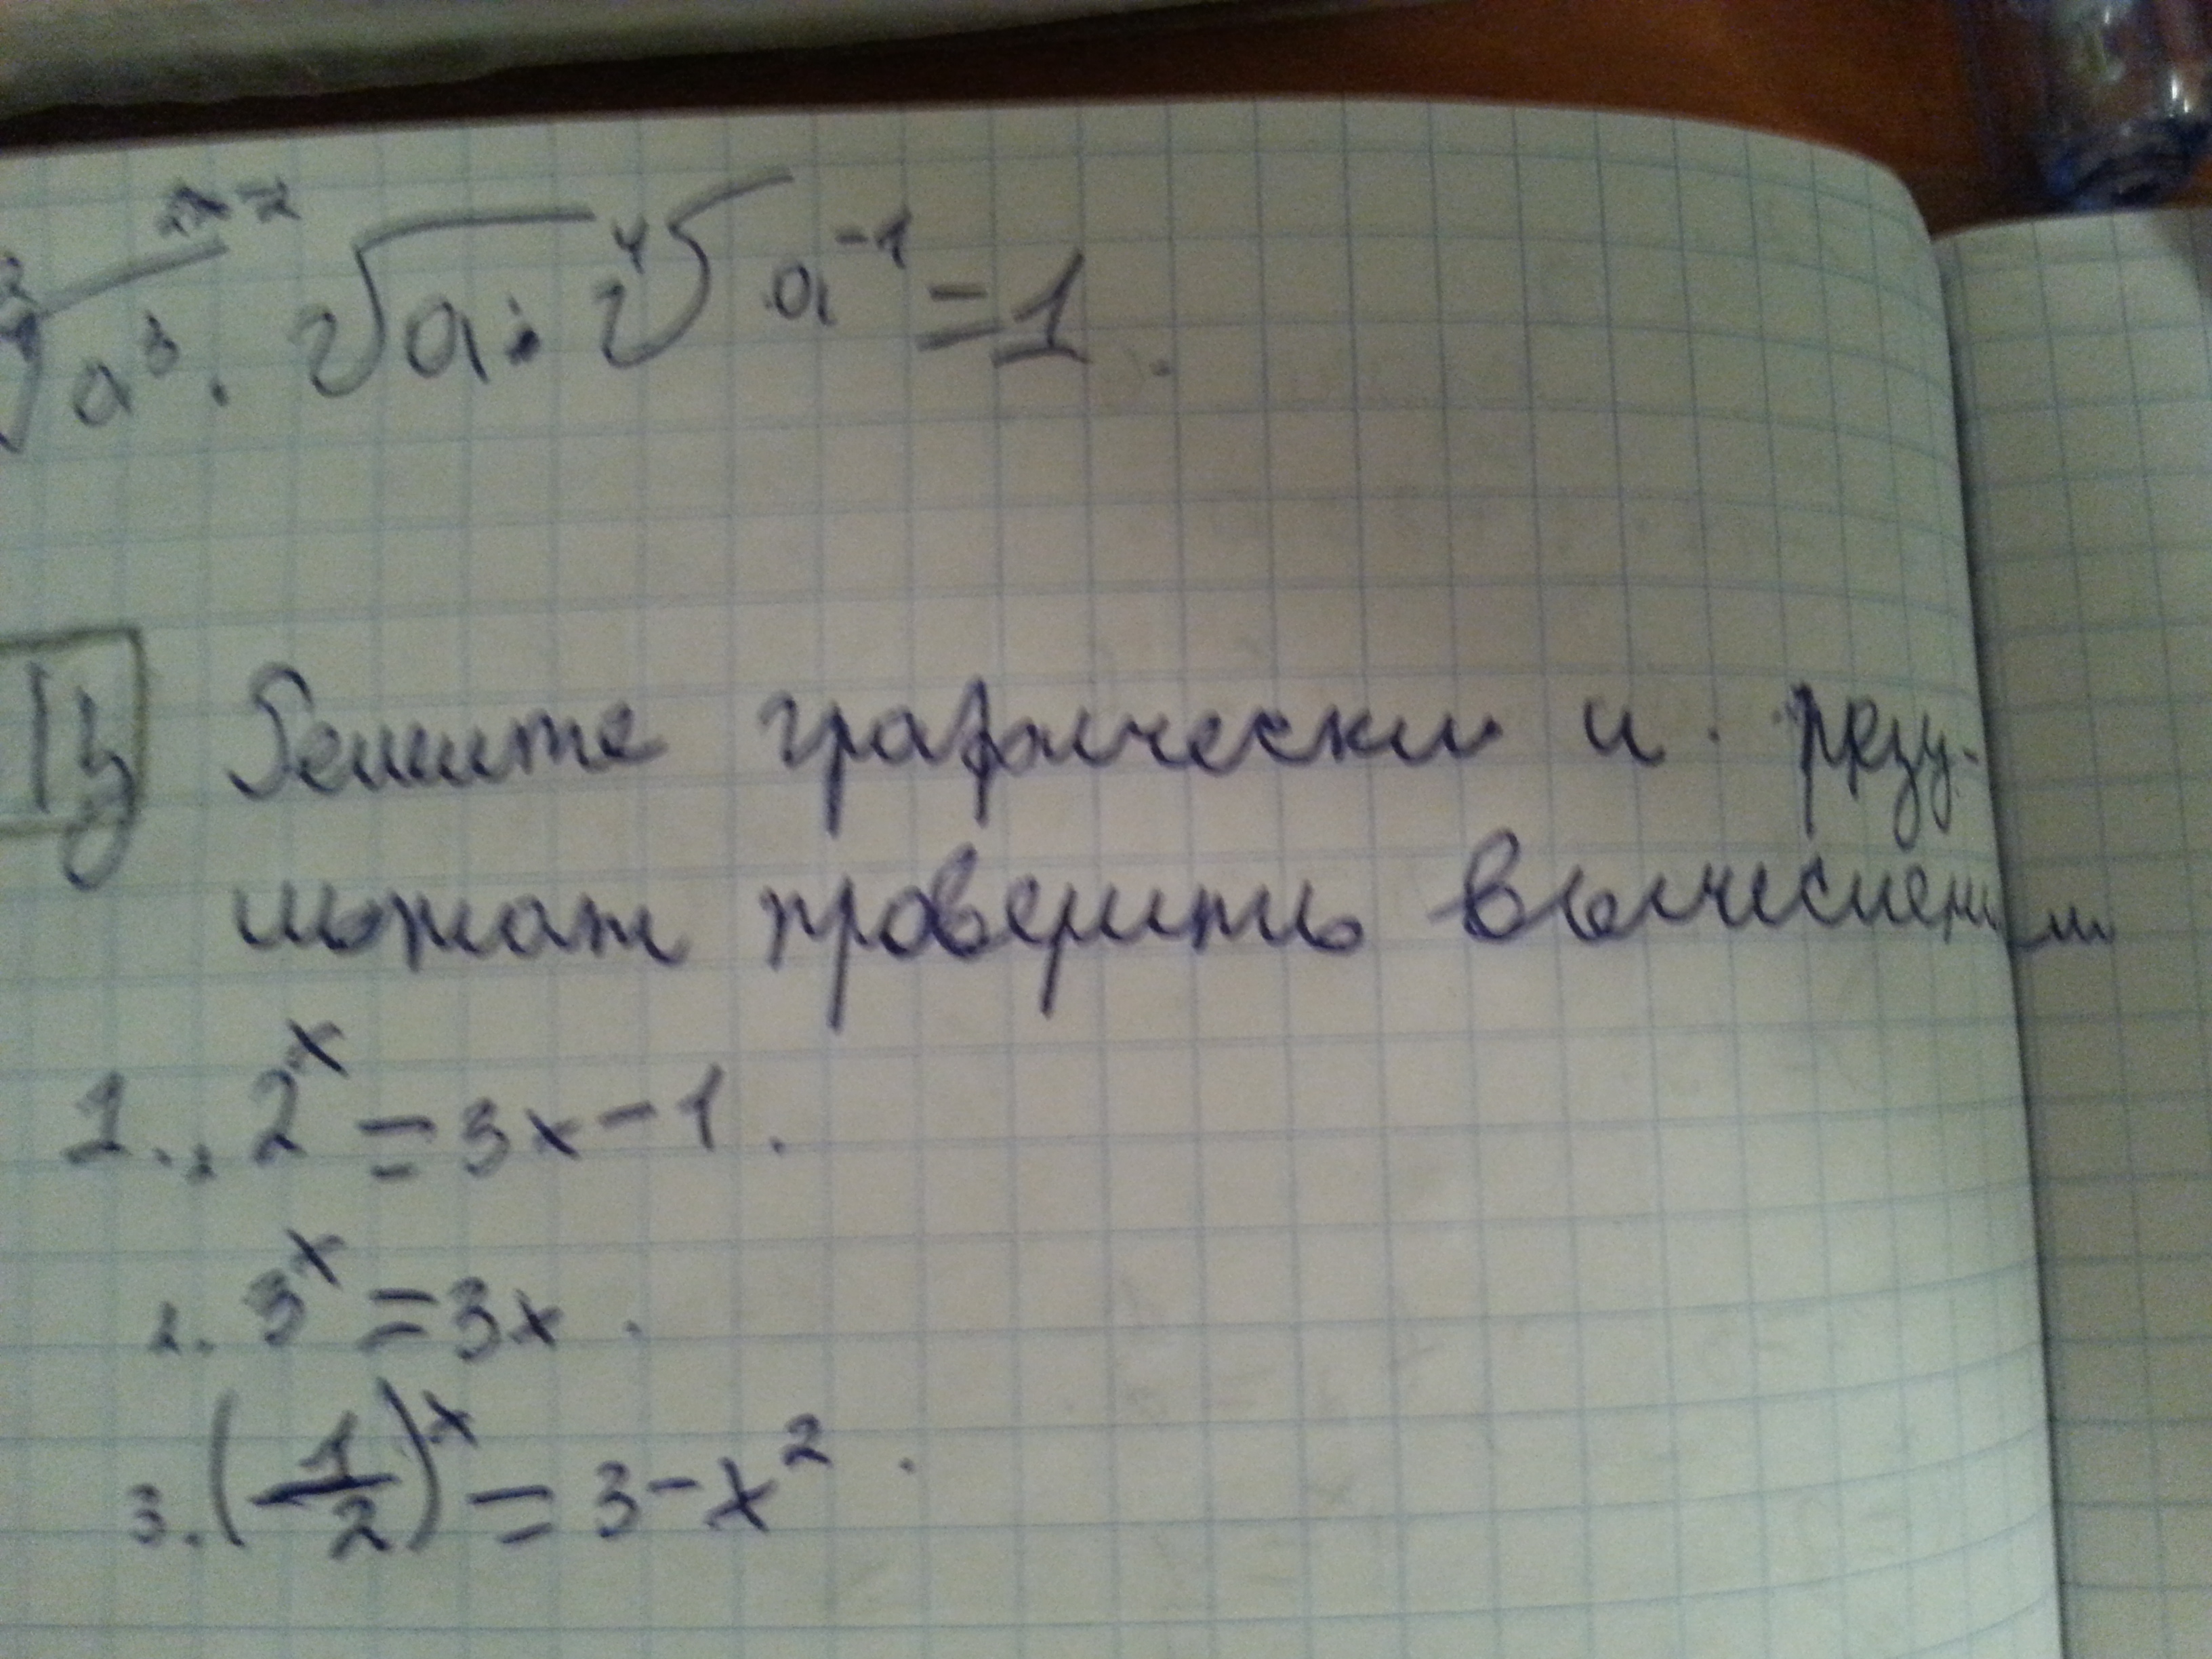 √a³ · √a : ⁴√a⁻¹ = 1.
Решите графически и резу-
льтат проверить вычислениями
1. 2ˣ = 3x - 1.
2. 3ˣ = 3x.
3. (1/2)ˣ = 3 - x².